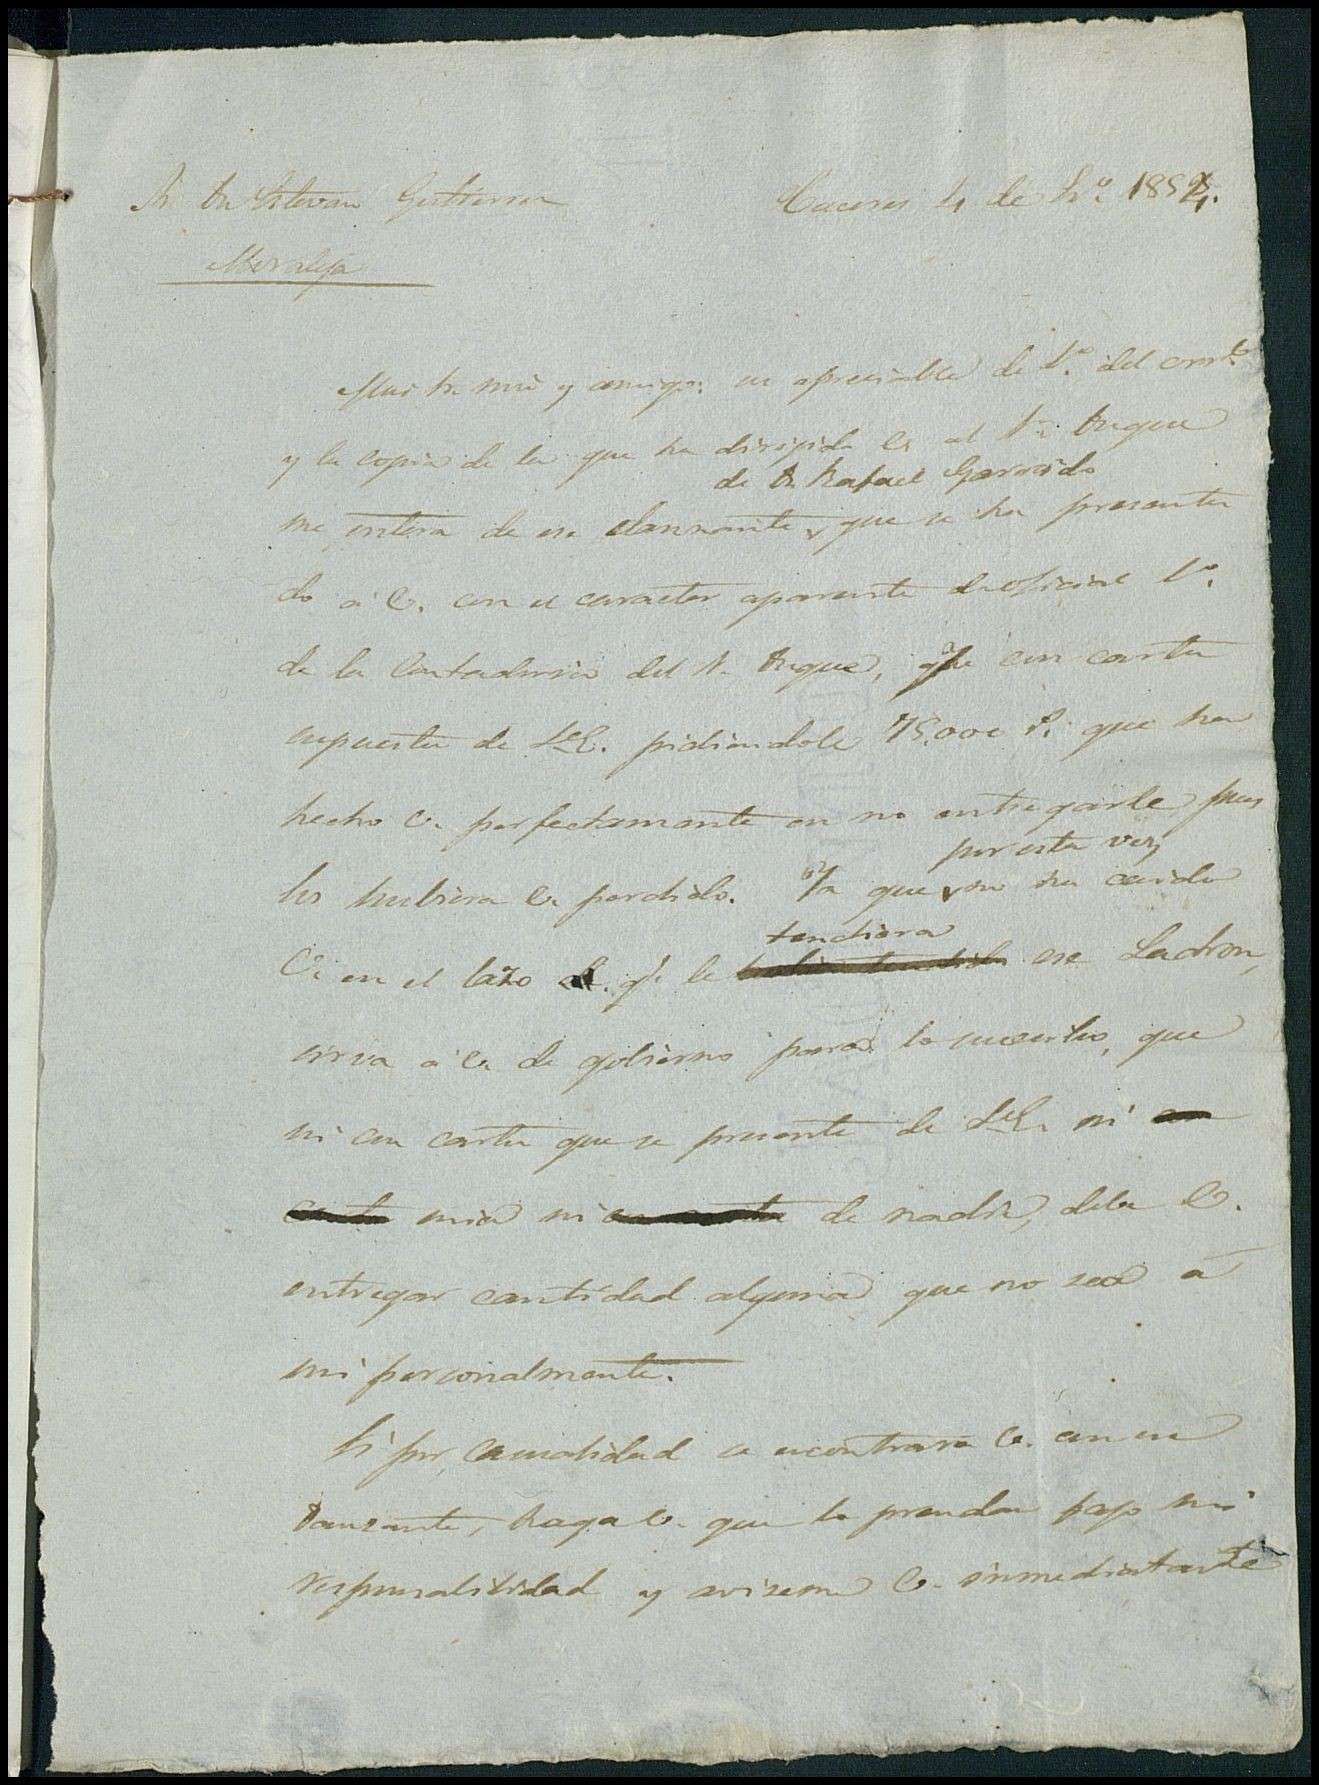 Sr. Dn. Estevan Gutierrez Caceres 4 de 1854.
Moraleja
Mui Sr. mio y amigo: su apreciable de 1º. del corrte.
y la copia de la que ha dirigido V. al Sr. Duque
de Dn. Rafael Garrido
me entera de ese danzante que se ha presenta
do á V. con el caracter aparente de oficial 1º.
de la Contaduria del Sr. Duque, y con carta
supuesta de S.E. pidiendole 75.000 rs. que ha
hecho V. perfectamente en no entregarle, pues
por esta vez
los hubiera V. perdido. Ya que no ha caido
tendiera
V. en el lazo qe. le ese Ladron,
sirva á V. de gobierno para lo sucesivo, que
ni con carta que se presente de S.E. ni
mia ni de nadie, debe V.
entregar cantidad alguna que no sea á
mi personalmente.
Si por casualidad se encontrara V. con ese
danzante, haga V. que lo prendan bajo mi
responsabilidad y aviseme V. inmediatamte.